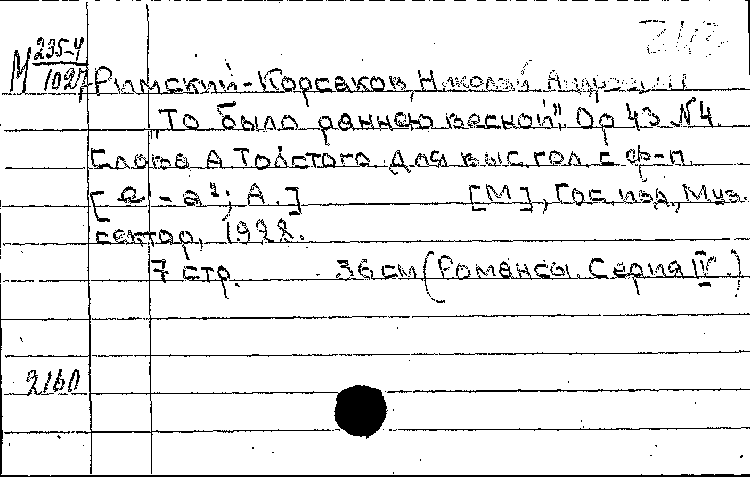 243
М 235-4/1027
Римский-Корсаков, Николай Андреевич
"То было раннею весной". Op 43 № 4.
Слова А Толстого. Для выс. гол. с ф-п.
[e¹ - a²; A.] [М], Гос. изд., Муз.
сектор, 1928.
7 стр. 36 см (Романсы. Серия IV.)
2160